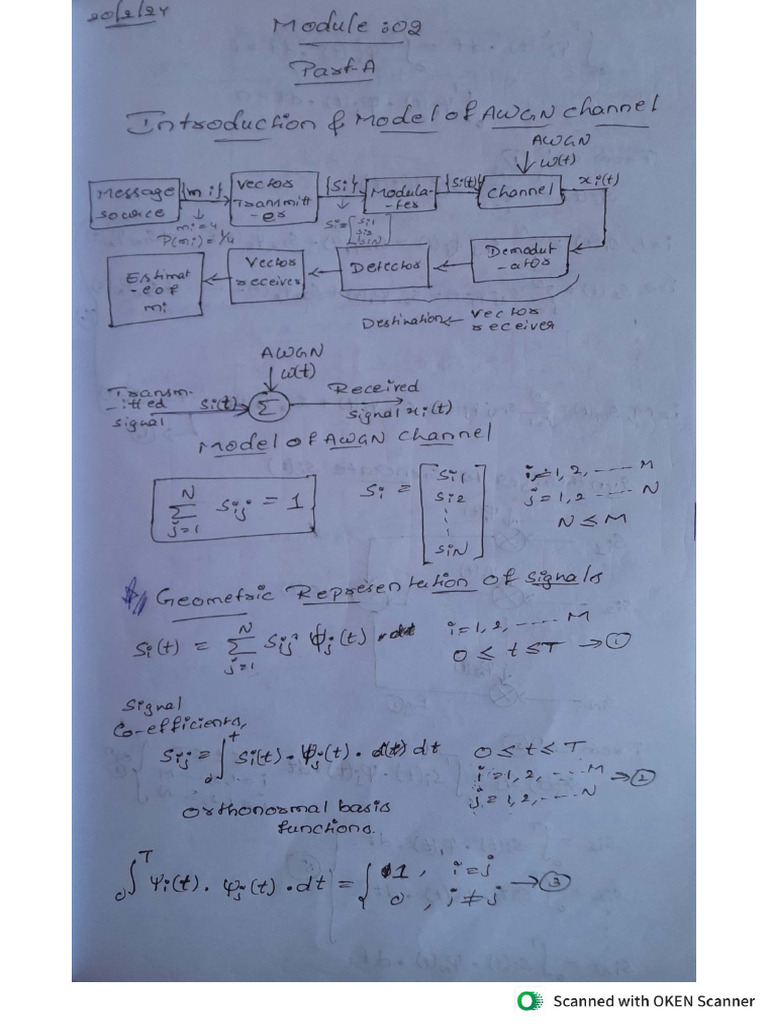 20/2/24
Module :02
Part-A
Introduction & Model of AWGN channel
AWGN
w(t)
Message source
{mi}
mi=4
P(mi)=1/4
Vector Transmitt-er
{si}
si = [si1 si2 siN]
Modula-ter
{si(t)}
Channel
xi(t)
Estimat-e of mi
Vector receiver
Detector
Demodul-ator
Destination ← Vector receiver
AWGN
w(t)
Transm-itted signal
si(t)
Σ
Received signal xi(t)
Model of AWGN channel
N Σ j=1 sij = 1
si = [si1 si2 ⋮ siN]
i=1,2,.....M
j=1,2.....N
N≤M
Geometric Representation of signals
si(t) = N Σ j=1 sij ψj(t) i=1,2,.....M
0≤t≤T →①
Signal
Co-efficients,
sij = ∫0^t si(t)·ψj(t)·dt 0≤t≤T
i=1,2,....M →②
j=1,2,....N
Orthonormal basis
functions.
∫0^T ψi(t)·ψj(t)·dt = { 1, i=j
0, i≠j →③
Scanned with OKEN Scanner